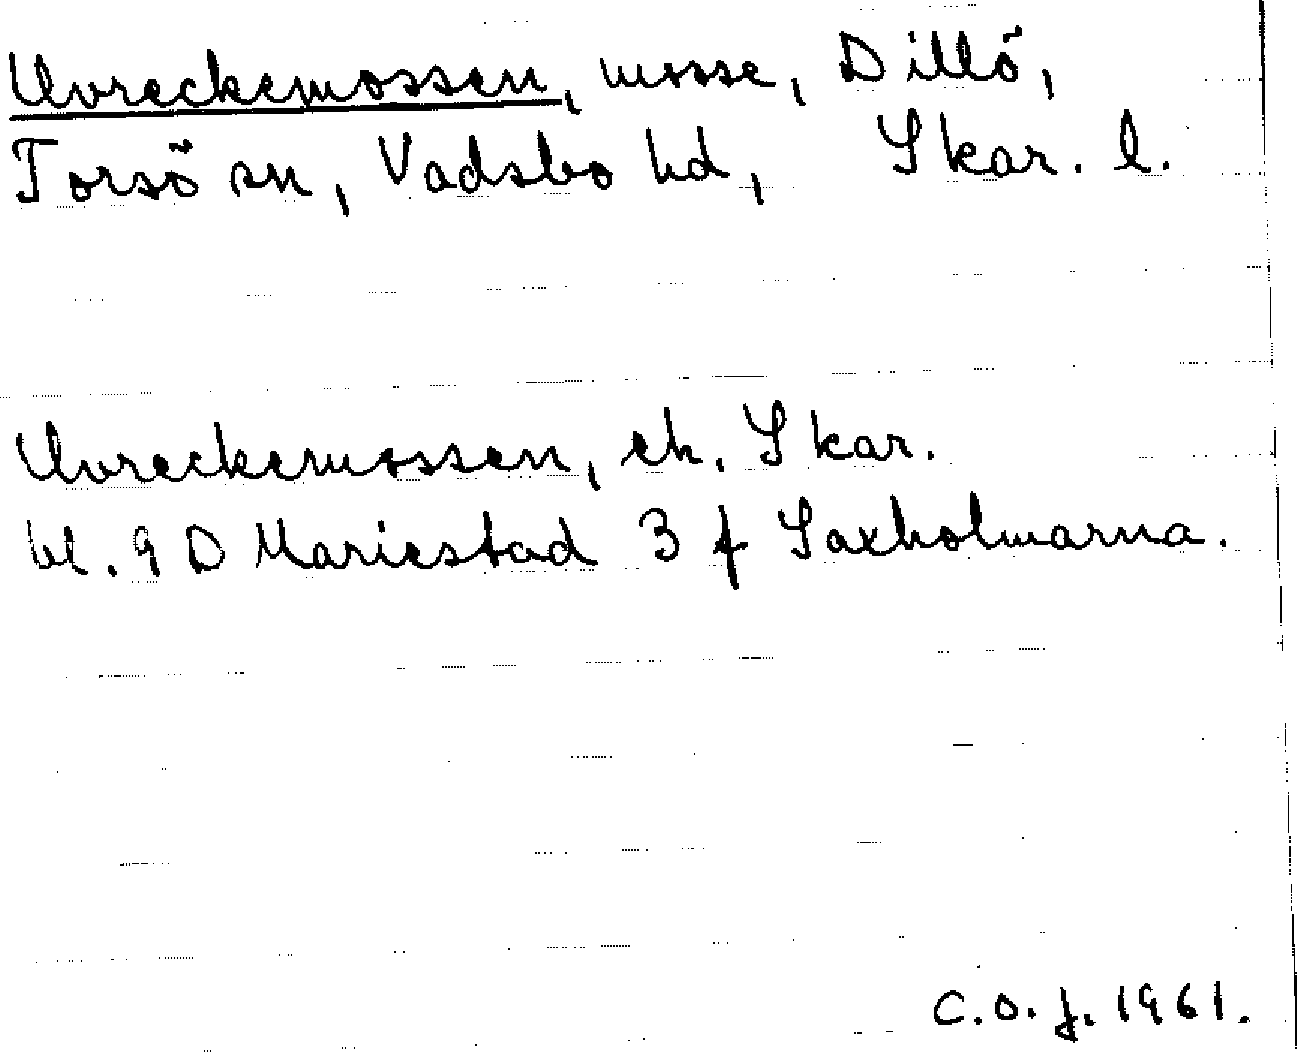 Uvreckemossen, mosse, Dillö,
Torsö sn, Vadsbo hd, Skar. l.
Uvreckemossen, ek. Skar.
bl. 9 D Mariestad 3 f Saxholmarna.
C.O.J. 1961.